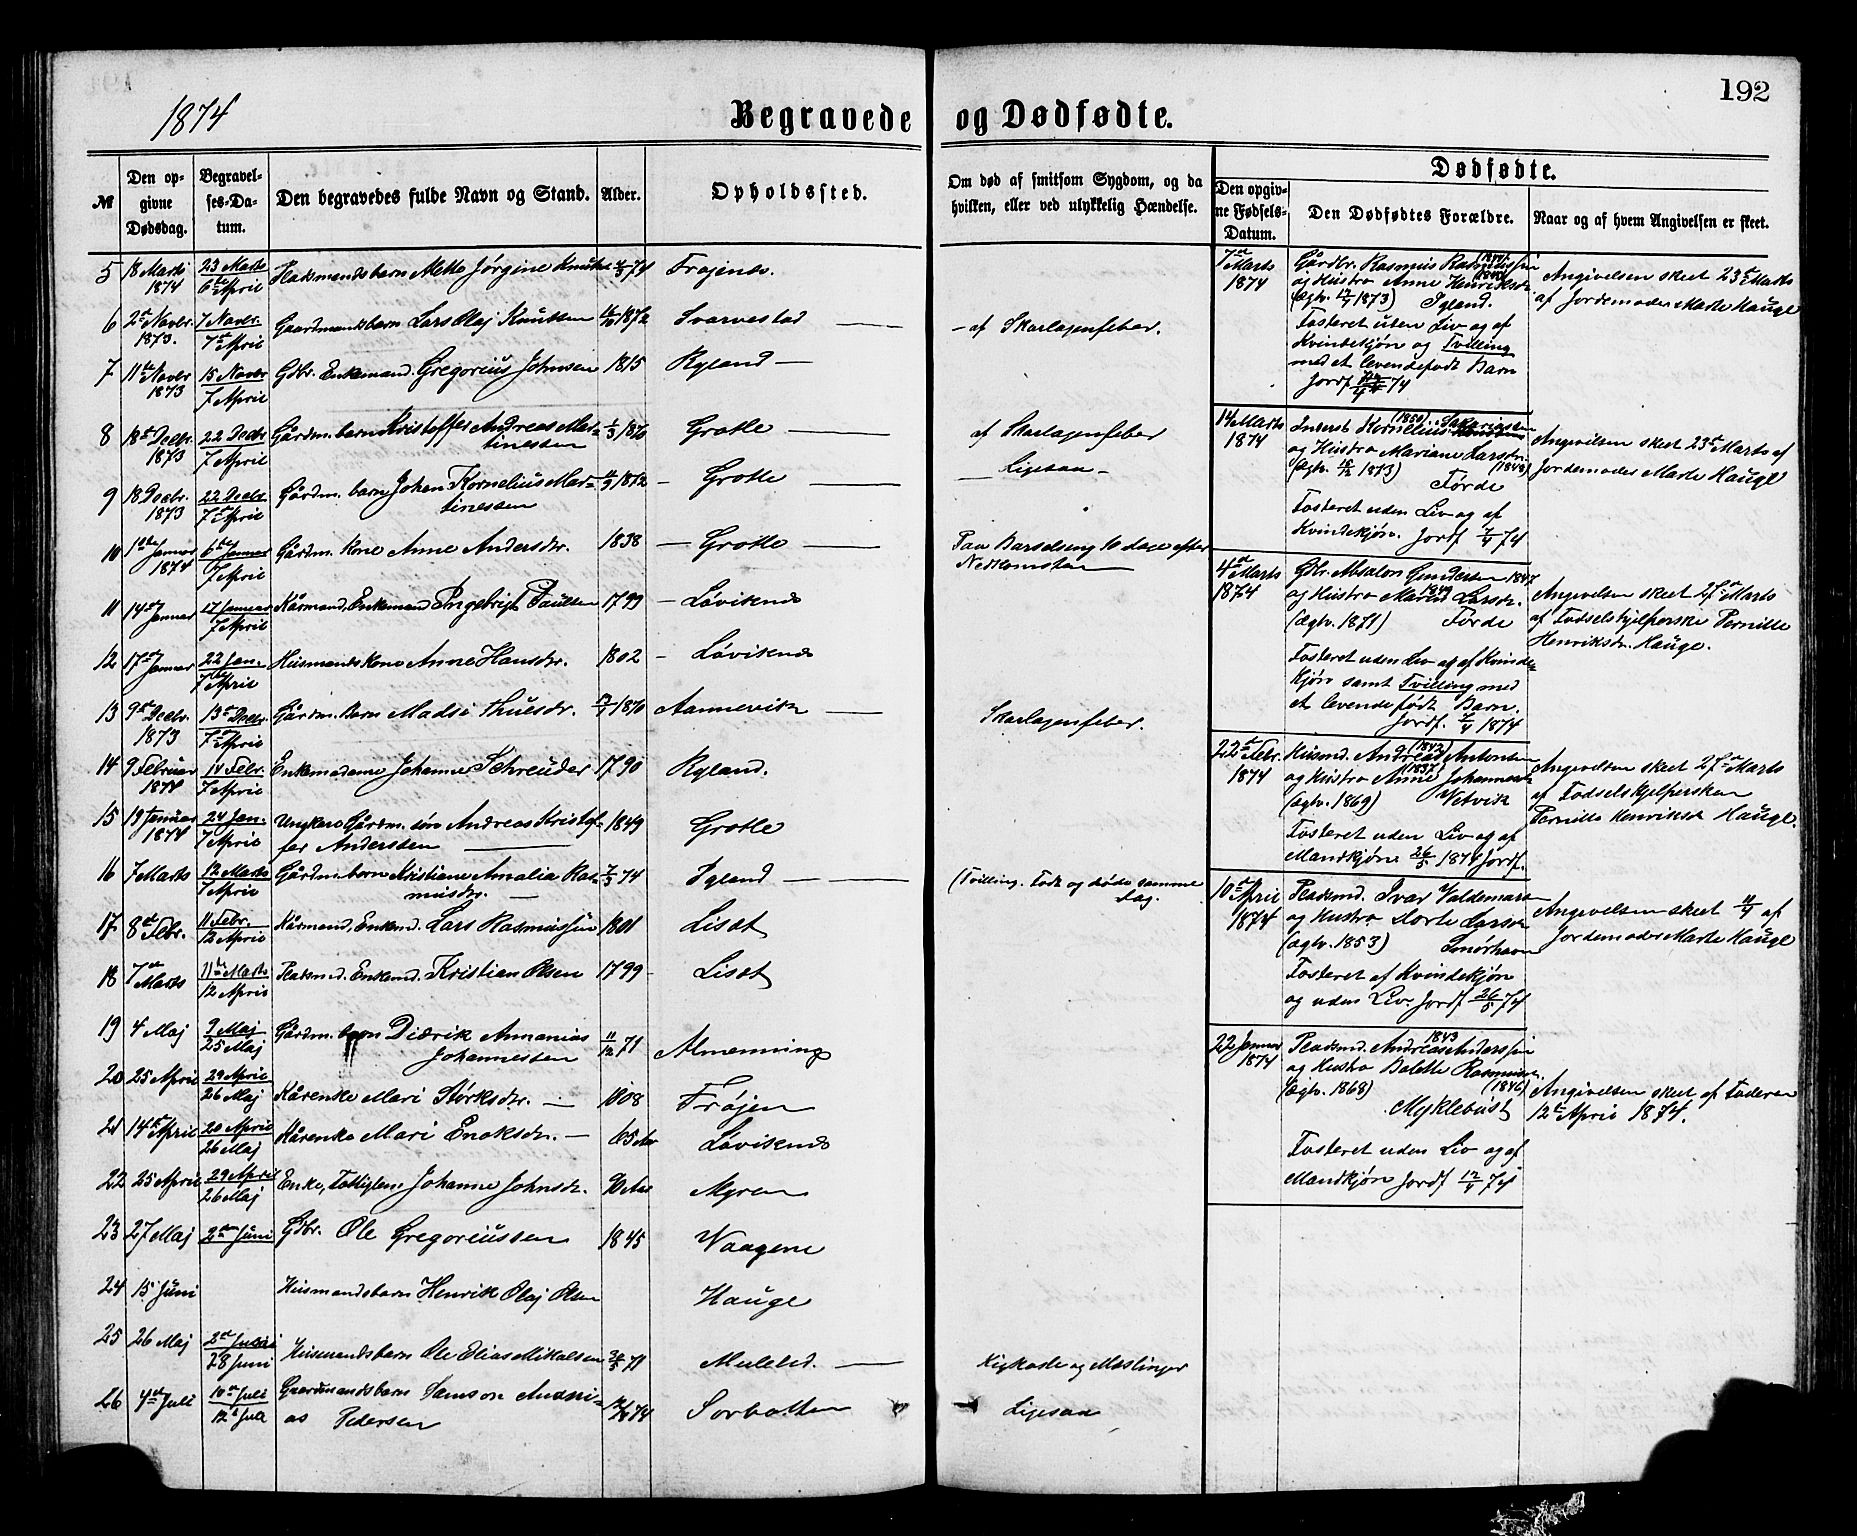 192
1874
Begravede og Dødfødte.
№
Den opgivne Dødsdag.
Begravelses-Datum.
Den begravedes fulde Navn og Stand.
Alder.
Opholdssted.
Om død af smitsom Sygdom, og da hvilken, eller ved ulykkelig Hændelse.
Dødfødte.
Den opgivne Fødsels-Datum.
Den Dødfødtes Forældre.
Naar og af hvem Angivelsen er skeet.
5 18 Marts 1874 23 Marts 6te April Pladsmandsbarn Mette Jørgine 74 Frøjenes.
6 2den Novbr. 1873. 7 Novbr. 7de April Gaardmandsbarn Lars Olaj Knutsen 1872 Svarvestad — - af Skarlagensfeber.
7 11te Novbr 1873 15 Novbr 7 April Gdbr. Enkemand. Gregorius Johnsen 1815 Ryland —
8 18de Decbr. 1873 22 Decbr 7 April Gårdm. barn Kristoffer Andreas Martinessen 1870 Grotle — af Skarlagenfeber
9 18 Decbr. 1873 22 Decbr 7de April Gårdm. barn Johan Kornelius Martinessen 1872 — Grotle — — Ligesaa —
10 1ste Januar 1874 6te Januar 7 April Gårdm. Kone Anne Andersdtr. 1838 — Grotle — Paa Barselseng 10 dage efter Nedkomsten —
11 14de Januar 17 Januar 7 April Kårmand, Enkemand Ingebrigt Paulsen 1799 — Løviknes
12 17de Januar 22 Jan. 7 April Husmands Kone Anne Hansdtr. 1802 — Løviknes
13 9de Decbr. 1873 13de Decbr. 7de April Gårdm. Barn Madsi Thuesdtr. 1870 Aannevik — Skarlagenfeber.
14 9 Februar 1874 14 Febr. 7 April Enkemadame Johanne Schreuder 1790 Ryland.
15 19 Januar 1874 24 Jan. 7 April Ungkarl Gårdm. søn Andreas Kristoffer Anderssen — 1849 Grotle
16 7 Marts 12 Marts 7 April Gårdm. barn Kristiane Amalia Rasmusdtr. — 7/3 74 Igland — (Tvilling. Født og døde samme dag.
17 8de Febr. 11 Febr. 12 April Kårmand, Enkemd. Lars Rasmussen 1801 Liset
18 7de Marts 11te Marts 12 April Pladsmd. Enkemd. Kristian Olsen 1799 Liset
19 4 Maj 9 Maj 25 Maj Gårdm. barn Didrik Annanias Johannessen 11/12 71 Almenning
20 25 April 29 April 26 Maj Kårenke Mari Størksdtr. — 1808 Frøjen
21 14de April 20 April 26 Maj Kårenke Mari Enoksdtr. — 65 Aar Løviknes
22 25 April 29 April 26 Maj Enke, Fattiglem Johanne Johnsdtr. 90 Aar Myren
23 27 Maj 2den Juni Gdbr. Ole Gregoriussen 1845 Vaagene
24 15 Juni Husmandsbarn Henrik Olaj Olsen Hauge
25 26 Maj 28 Juni Husmandsbarn Ole Elias Mikalsen 71 Muleled. — Kighoste og Mæslinger
26 4de Juli 10de Juli 12te Juli Gaardmandsbarn Samson Andreas Pedersen 74 Sorbotten Ligesaa
7de Marts 1874 Gårdbr. Rasmus og Hustru Anne Henriksdtr. (Ægtv. 1873) Igland.
Fosteret uden Liv og af Kvindekjøn og Tvilling med et levendefødt Barn Jordf 74
Angivelsen skeet 23de Marts af Jordemoder Marte Hauge
14 Marts 1874 Inderst Kornelius (1850) Sakariassen og Hustru Mariane Larsdtr. (1848) (Ægtv. 1873) Førde
Fosteret uden Liv og af Kvindekjøn. Jordf 7/4 74
Angivelsen skeet 23de Marts af Jordemoder Marte Hauge
4de Marts 1874 Gdbr. Absalon Gundersen 1847 og Hustru Maren Larsdtr. (Ægtv. 1871) Førde
Fosteret uden Liv og af Kvindekjøn samt Tvilling med et levende født Barn. Jordf. 7/4 1874
Angivelsen skeet 27de Marts af Fødselshjelperske Pernille Henriksdtr. Hauge.
22de Febr. 1874 Husmd. Andreas (1842) Antonsen og Hustru Anne (1837) Johannesdtr (Ægtv. 1869) Vetvik
Fosteret uden Liv og af Mandkjøn 26/5 1874 Jordf.
Angivelsen skeet 27de Marts af Fødselshjelpersken Pernille Henriksdt Hauge.
10de April 1874 Pladsmd. Ivar Valdemars og Hustru Dorte Larsdtr (Ægtv. 1853) Smørhavn
Fosteret af Kvindekjøn og uden Liv. Jordf 26/5 74
Angivelsen skeet 11/4 af Jordemoder Marte Hauge
22 Januar 1874 Pladsmd. Andreas 1843 Anderssen og Hustru Bolette Rasmusdtr. (1846) (Ægtv. 1868) Myklebust
Fosteret uden Liv og af Mandkjøn Jordf 12/4 74
Angivelsen skeet af Faderen 12te April 1874.